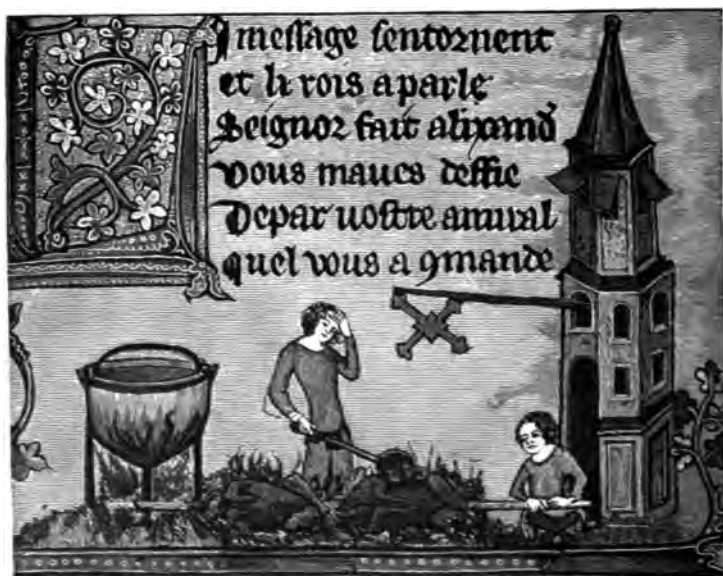 LI message sentornent
et li rois a parle
Seignor fait alixand'
vous maues deffie
Depar uostre amiral
quel vous a 9mande